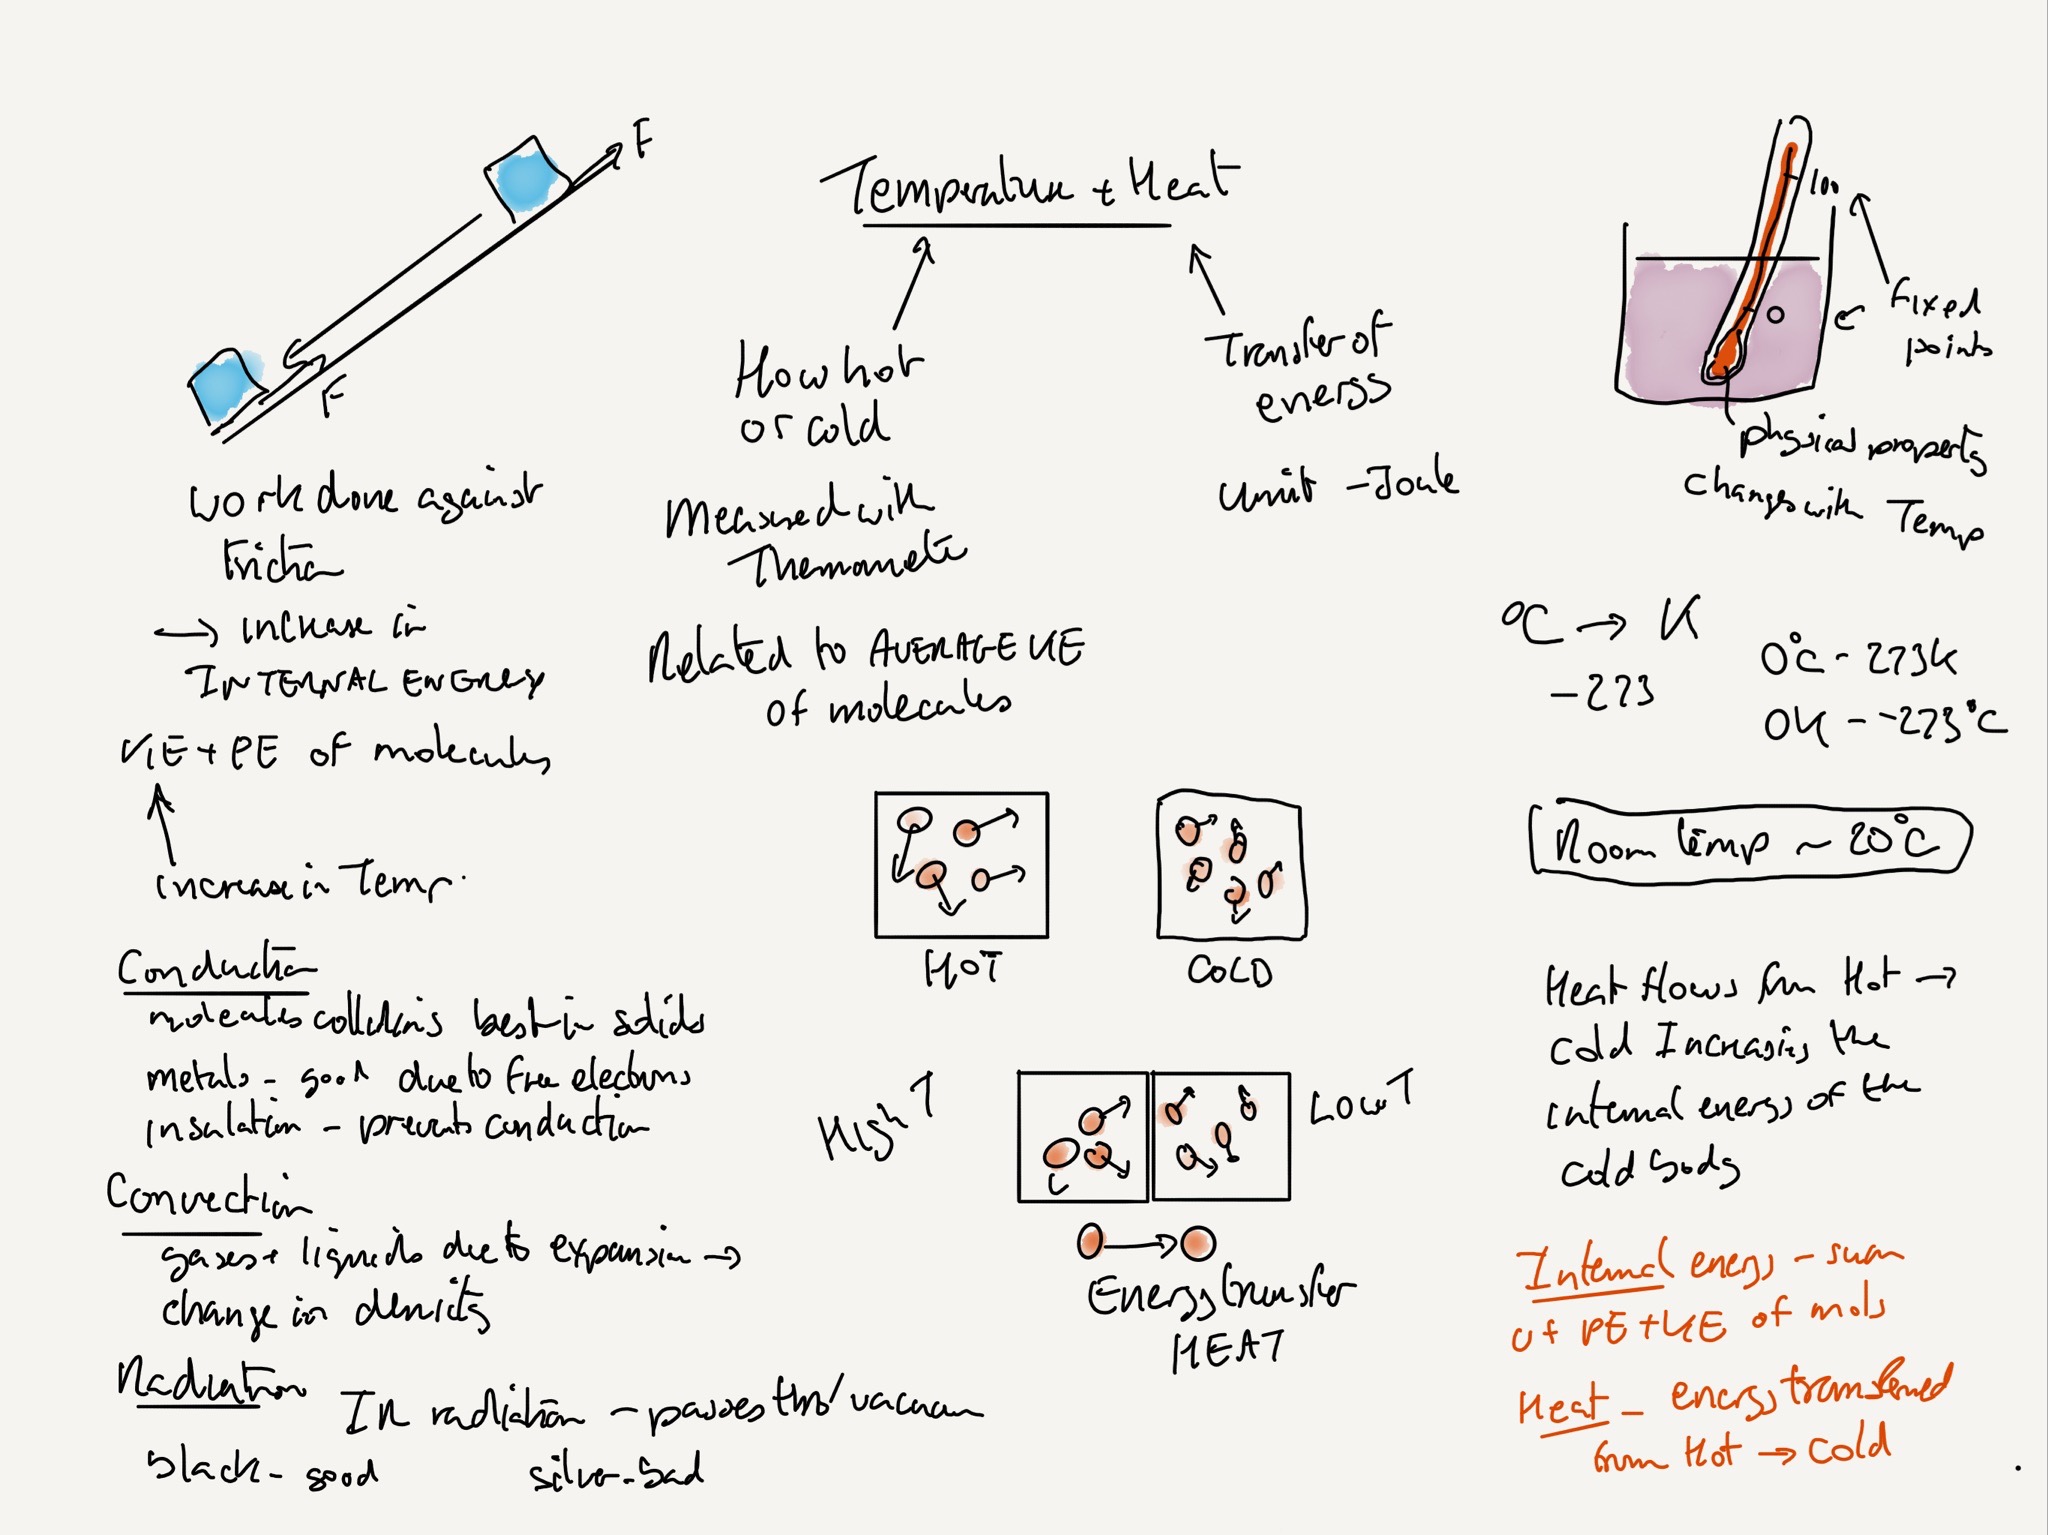 Temperature + Heat
F
F
Work done against
friction
→ increase in
INTERNAL ENERGY
KE + PE of molecules
increase in Temp.
How hot
or cold
Measured with
Thermometer
Related to AVERAGE KE
of molecules
Transfer of
energy
Unit - Joule
100
0
Fixed
points
physical property
changes with Temp
°C → K
-273
0°C - 273K
0K - -273°C
Room temp ~ 20°C
HOT
COLD
High T
Low T
Energy transfer
HEAT
Conduction
molecules collisions best in solids
metals - good due to free electrons
insulation - prevents conduction
Convection
gases + liquids due to expansion →
change in density
Radiation
IR radiation - passes thro' vacuum
black - good
silver - bad
Heat flows from Hot →
cold Increasing the
internal energy of the
cold body
Internal energy - sum
of PE + KE of mols
Heat - energy transferred
from Hot → cold